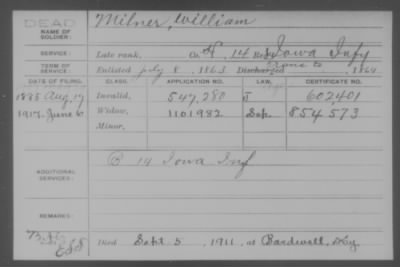 DEAD
NAME OF SOLDIER:
Milner, William
SERVICE:
Late rank, Co. 14 Reg't Iowa Infy
TERM OF SERVICE
Enlisted July 8, 1863 Discharged Trans to, 186
DATE OF FILING. CLASS. APPLICATION NO. LAW. CERTIFICATE NO.
1885 Aug. 17 Invalid, 547,280 J 602,401
1917 June 6 Widow, 1101982 Sep 854,573
Minor,
ADDITIONAL SERVICES:
B 14 Iowa Inf
REMARKS:
Died Sept 5, 1911, at Bardwell, Ky.